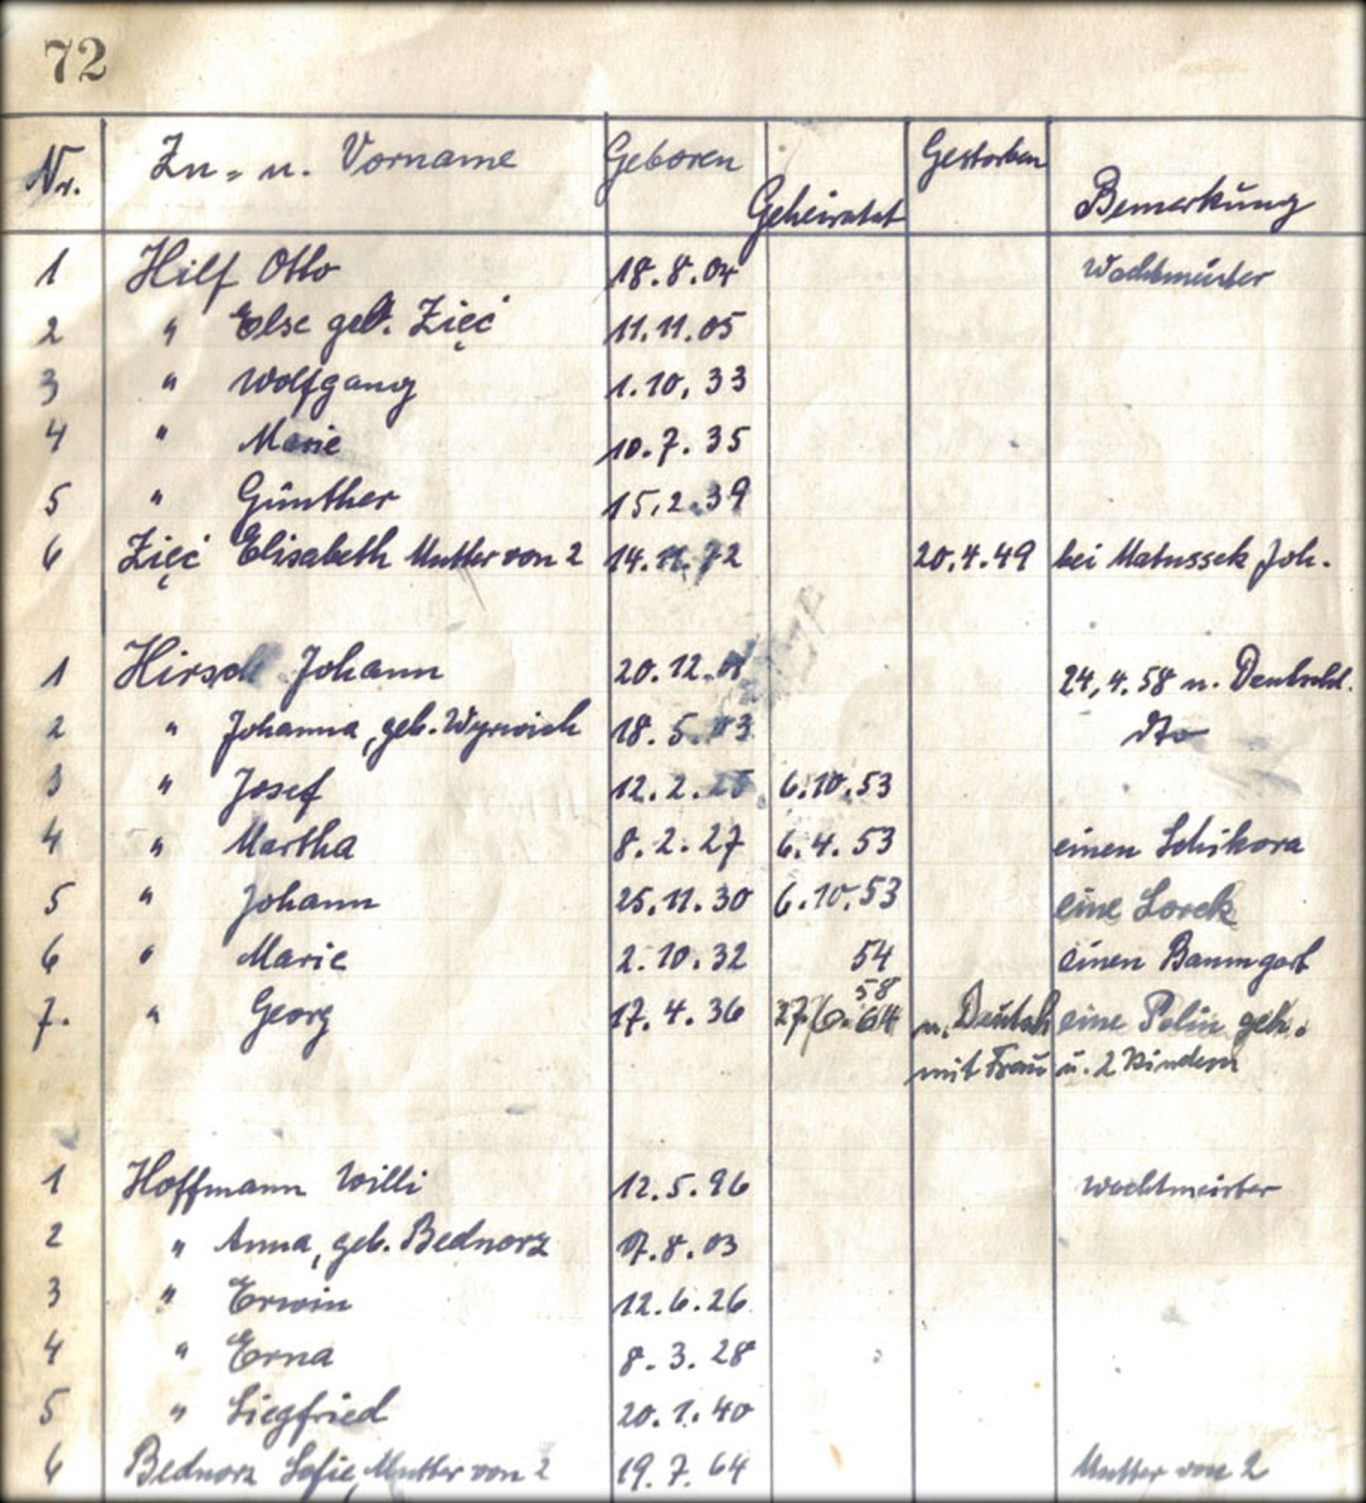 72
Nr. Zu= u. Vorname Geboren Geheiratet Gestorben Bemerkung
1 Hilf Otto 18.8.04 Wachtmeister
2 " Else geb. Zięć 11.11.05
3 " Wolfgang 1.10.33
4 " Marie 10.7.35
5 " Günther 15.2.39
6 Zięć Elisabeth Mutter von 2 14.11.72 20.4.49 bei Matussek Joh.
1 Hirsch Johann 20.12.01 24.4.58 n. Deutschl.
2 " Johanna, geb. Wyrwich 18.5.03 dto
3 " Josef 12.2.25 6.10.53
4 " Martha 8.2.27 6.4.53 einen Schikora
5 " Johann 25.11.30 6.10.53 eine Lorek
6 " Marie 2.10.32 54 einen Baumgart
58
7. " Georg 17.4.36 27/6.64 n. Deutsch eine Polin geh.
mit Frau u. 2 Kindern
1 Hoffmann Willi 12.5.96 Wachtmeister
2 " Anna, geb. Bednorz 17.8.03
3 " Erwin 12.6.26
4 " Erna 8.3.28
5 " Siegfried 20.1.40
6 Bednorz Sofie, Mutter von 2 19.7.64 Mutter von 2